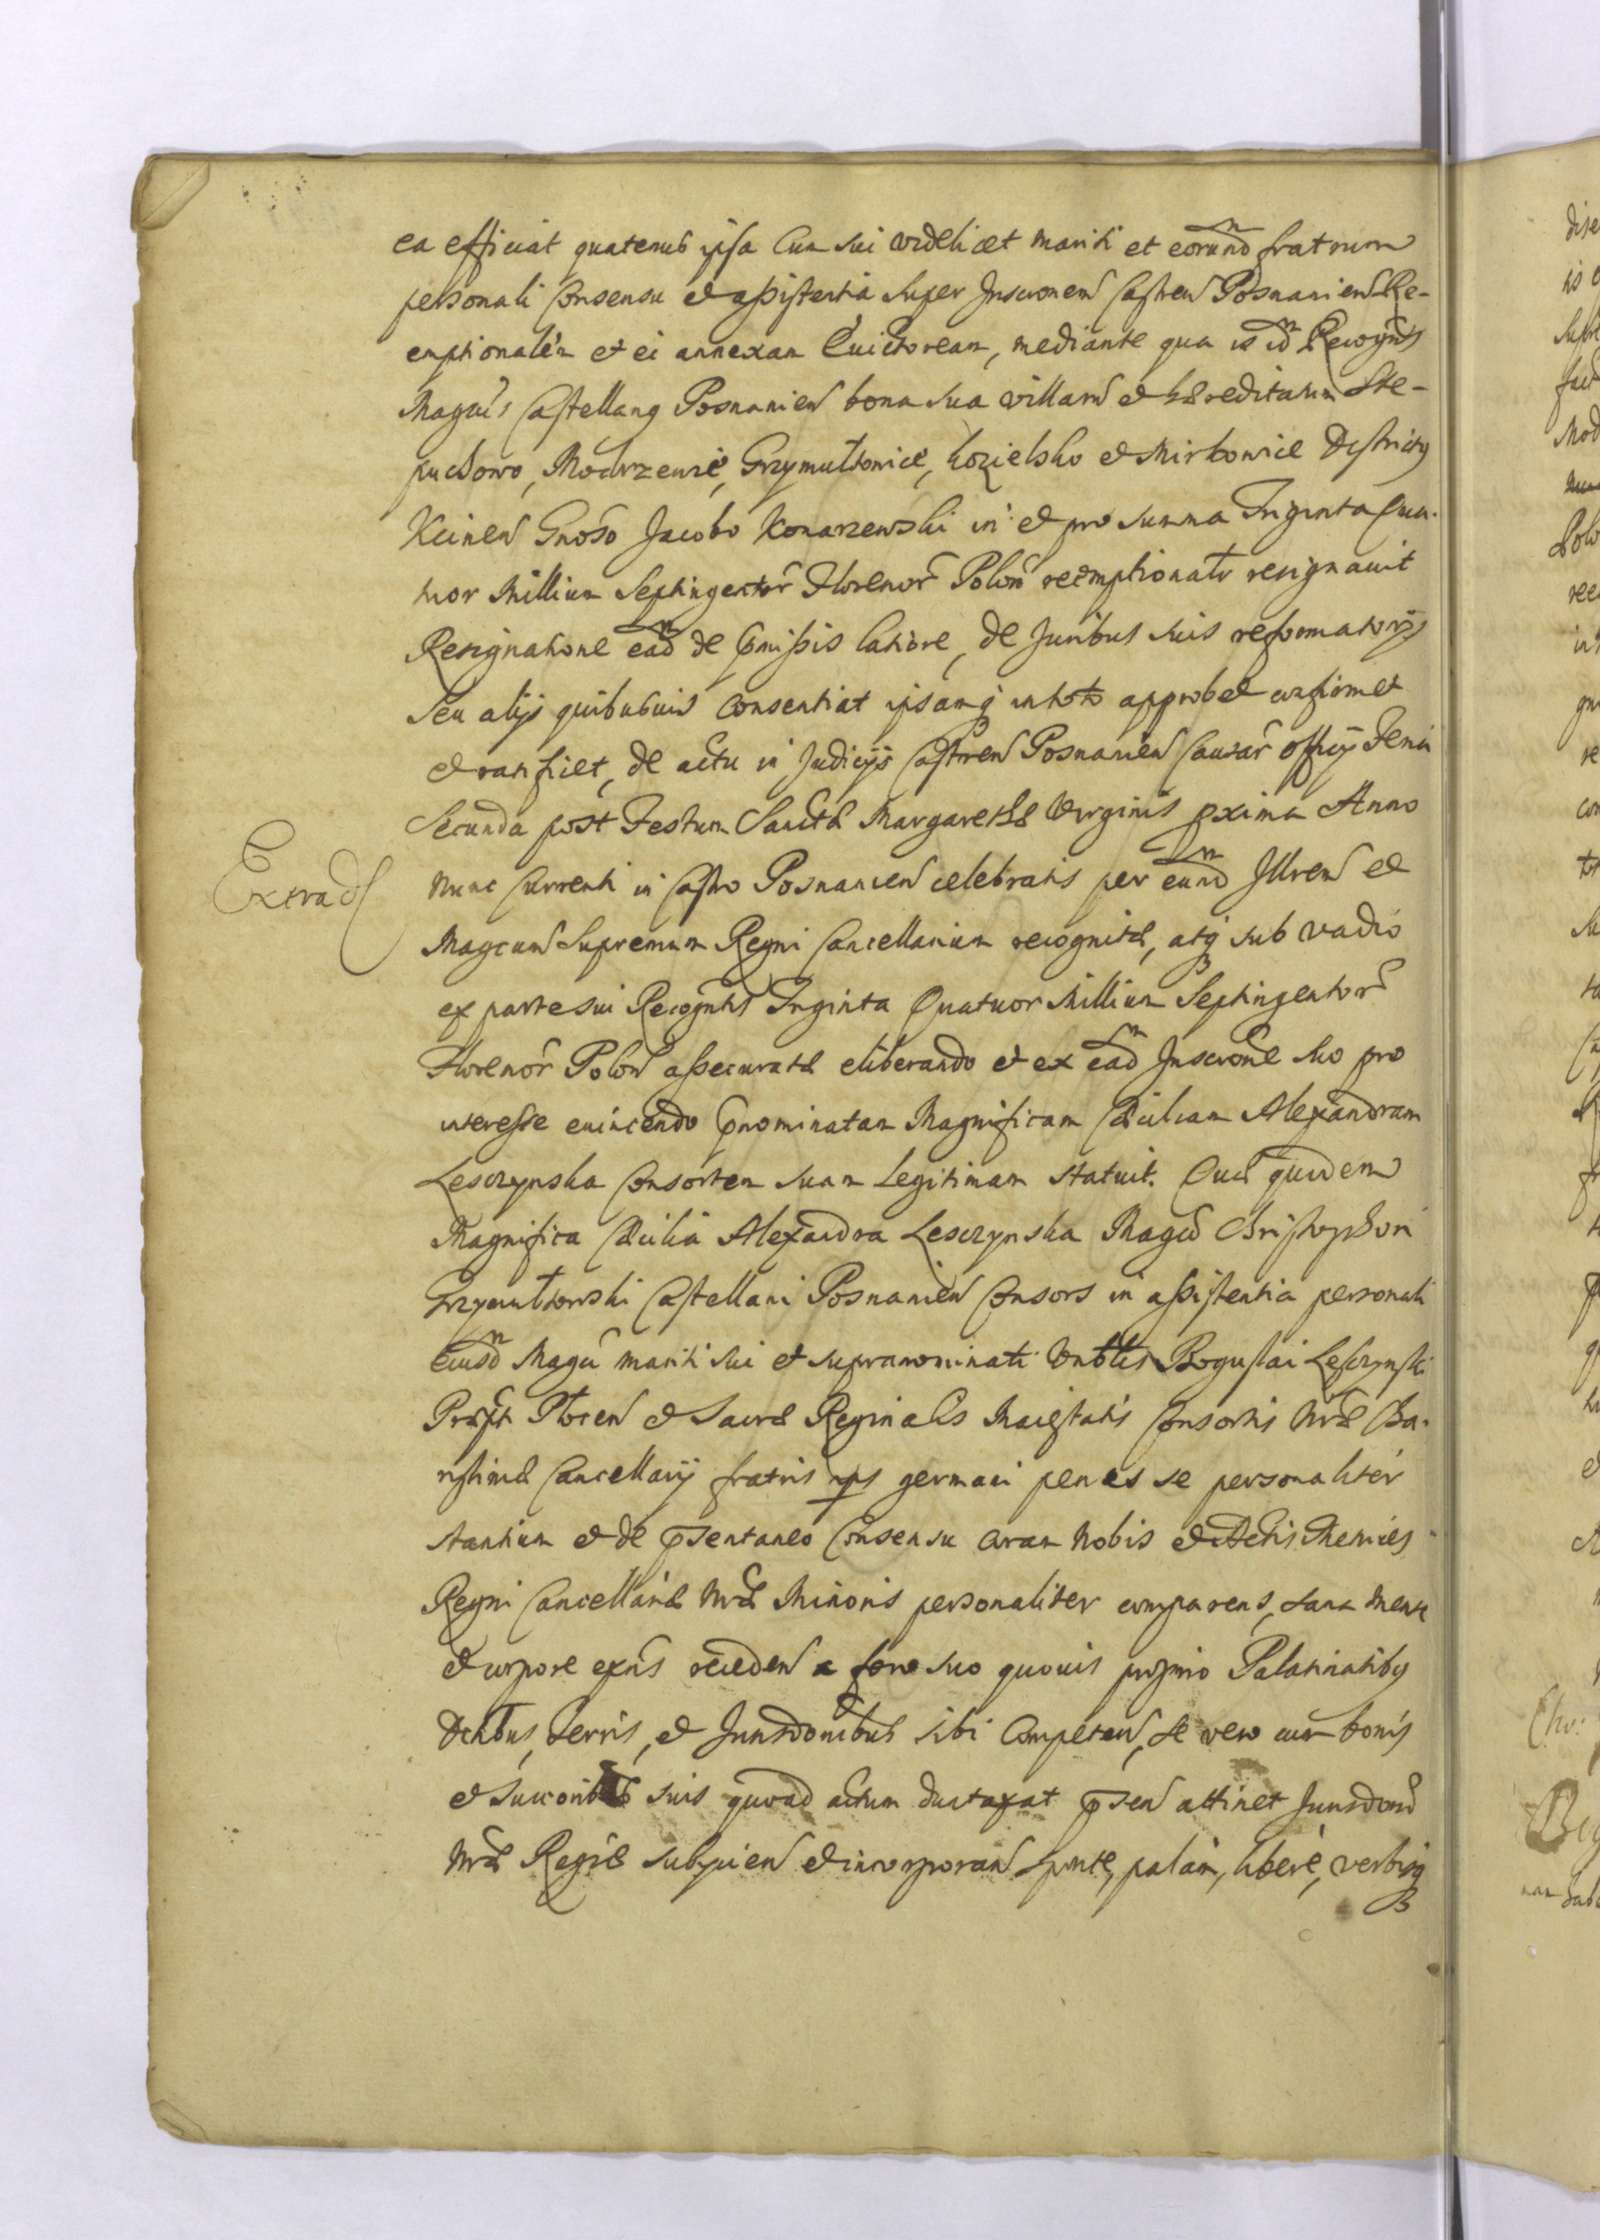 ea efficiat quatenus ipsa Cum sui videlicet mariti et eorund fratrum
personali Consensu et assistentia super Inscrionem Castren Posnanien Re-
emptionalem et ei annexam Euictoream, mediante qua is id Recogns
Magcus Castellanq Posnanien bona sua villarũ et hæreditatum Ste-
puchowo, Modrzewie, Grzymułtowice, kozielsko et Mirkowice Districtq
Kcinen Gnoso Jacobo Konarzewski in et pro summa Triginta Qua-
tuor Millium Septingentor Florenor Polon reemptionalr resignauit
Resignatione ead de pmissis latiore, de Juribus suis reformatorijs
seu alijs quibusuis Consentiat ipsamq in toto approbet confirmet
et ratificet, de actu in Judicijs Castren Posnanien Causar officij Feria
Secunda post Festum Sanctæ Margarethæ Virginis pxima Anno
Extrad
nunc Currenti in Castro Posnanien celebratis per eund Illrem et
Magcum Supremum Regni Cancellarium recognitæ, atq sub vadio
ex parte sui Recogntis Triginta Quatuor Millium Septingentor
Florenor Polon assecuratæ eliberando et ex ead Inscrone suo pro
interesse euincendo pnominatam Magnificam Cæciliam Alexandram
Lesczynska Consortem suam Legitimam statuit. Quæ quidem
Magnifica Cæcilia Alexandra Lesczynska Magci Christophori
Grzymułtowski Castellani Posnanien Consors in assistentia personali
eiusd Magci mariti sui et supranominati Vnblis Boguslai Lesczynski
Præpti Plocen et Sacræ Reginalis Maiestatis Consortis Nræ Cha-
rissimæ Cancellarij fratris sui germani penes se personaliter
stantium et de psentaneo Consensu coram Nobis et Actis Metrices
Regni Cancellariæ Nræ Minoris personaliter comparens, sana mente
et corpore exns recedens a foro suo quouis proprio Palatinatibq
Dctibus, terris, et Jurisdonibus sibi Competen, se vero cum bonis
et succoribus suis quoad actum duntaxat psen attinet Jurisdoni
Nræ Regiæ subijcien et incorporan sponte, palam, libere, verbisq